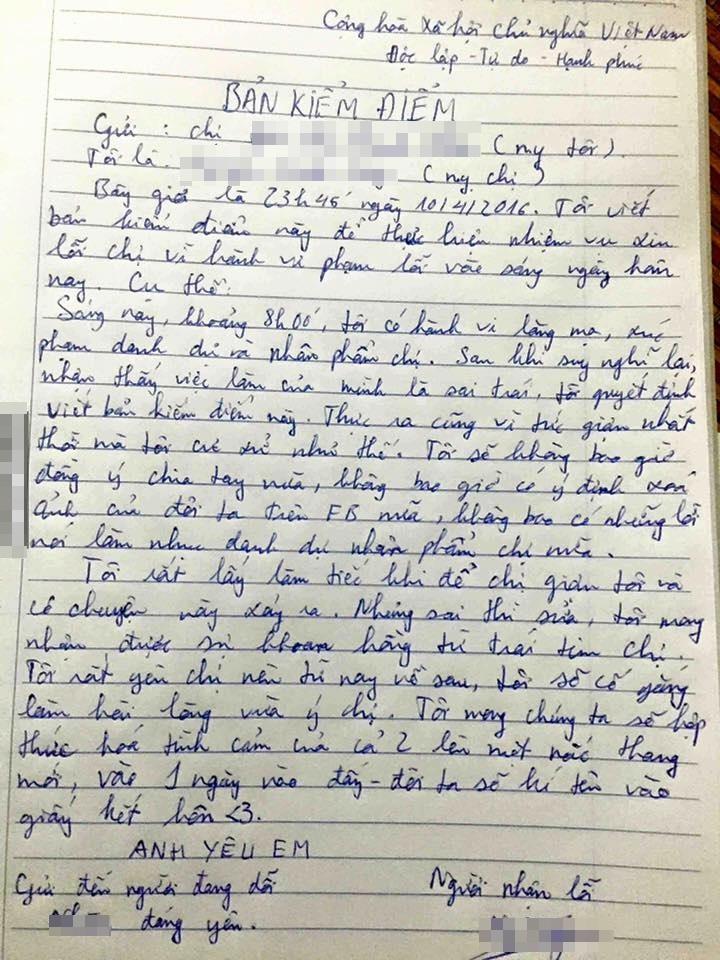 Cộng hoà Xã hội chủ nghĩa Việt Nam
Độc lập - Tự do - Hạnh phúc
BẢN KIỂM ĐIỂM
Gửi : chị (my tôi)
Tôi là (my chị)
Bây giờ là 23h45' ngày 10/4/2016. Tôi viết
bản kiểm điểm này để thực hiện nhiệm vụ xin
lỗi chị vì hành vi phạm lỗi vào sáng ngày hôm
nay. Cụ thể:
Sáng nay, khoảng 8h00', tôi có hành vi lăng mạ, xúc
phạm danh dự và nhân phẩm chị. Sau khi suy nghĩ lại,
nhận thấy việc làm của mình là sai trái, tôi quyết định
viết bản kiểm điểm này. Thực ra cũng vì tức giận nhất
thời mà tôi cư xử như thế. Tôi sẽ không bao giờ
đồng ý chia tay nữa, không bao giờ có ý định xoá
ảnh của đôi ta trên FB nữa, không bao có những lời
nói làm nhục danh dự nhân phẩm chị nữa.
Tôi rất lấy làm tiếc khi để chị giận tôi và
có chuyện này xảy ra. Nhưng sai thì sửa, tôi mong
nhận được sự khoan hồng từ trái tim chị.
Tôi rất yêu chị nên từ nay về sau, tôi sẽ cố gắng
làm hài lòng vừa ý chị. Tôi mong chúng ta sẽ hợp
thức hoá tình cảm của cả 2 lên một nấc thang
mới, vào 1 ngày nào đấy - đôi ta sẽ kí tên vào
giấy kết hôn <3.
ANH YÊU EM
Gửi đến người đang dỗi
đáng yêu.
Người nhận lỗi